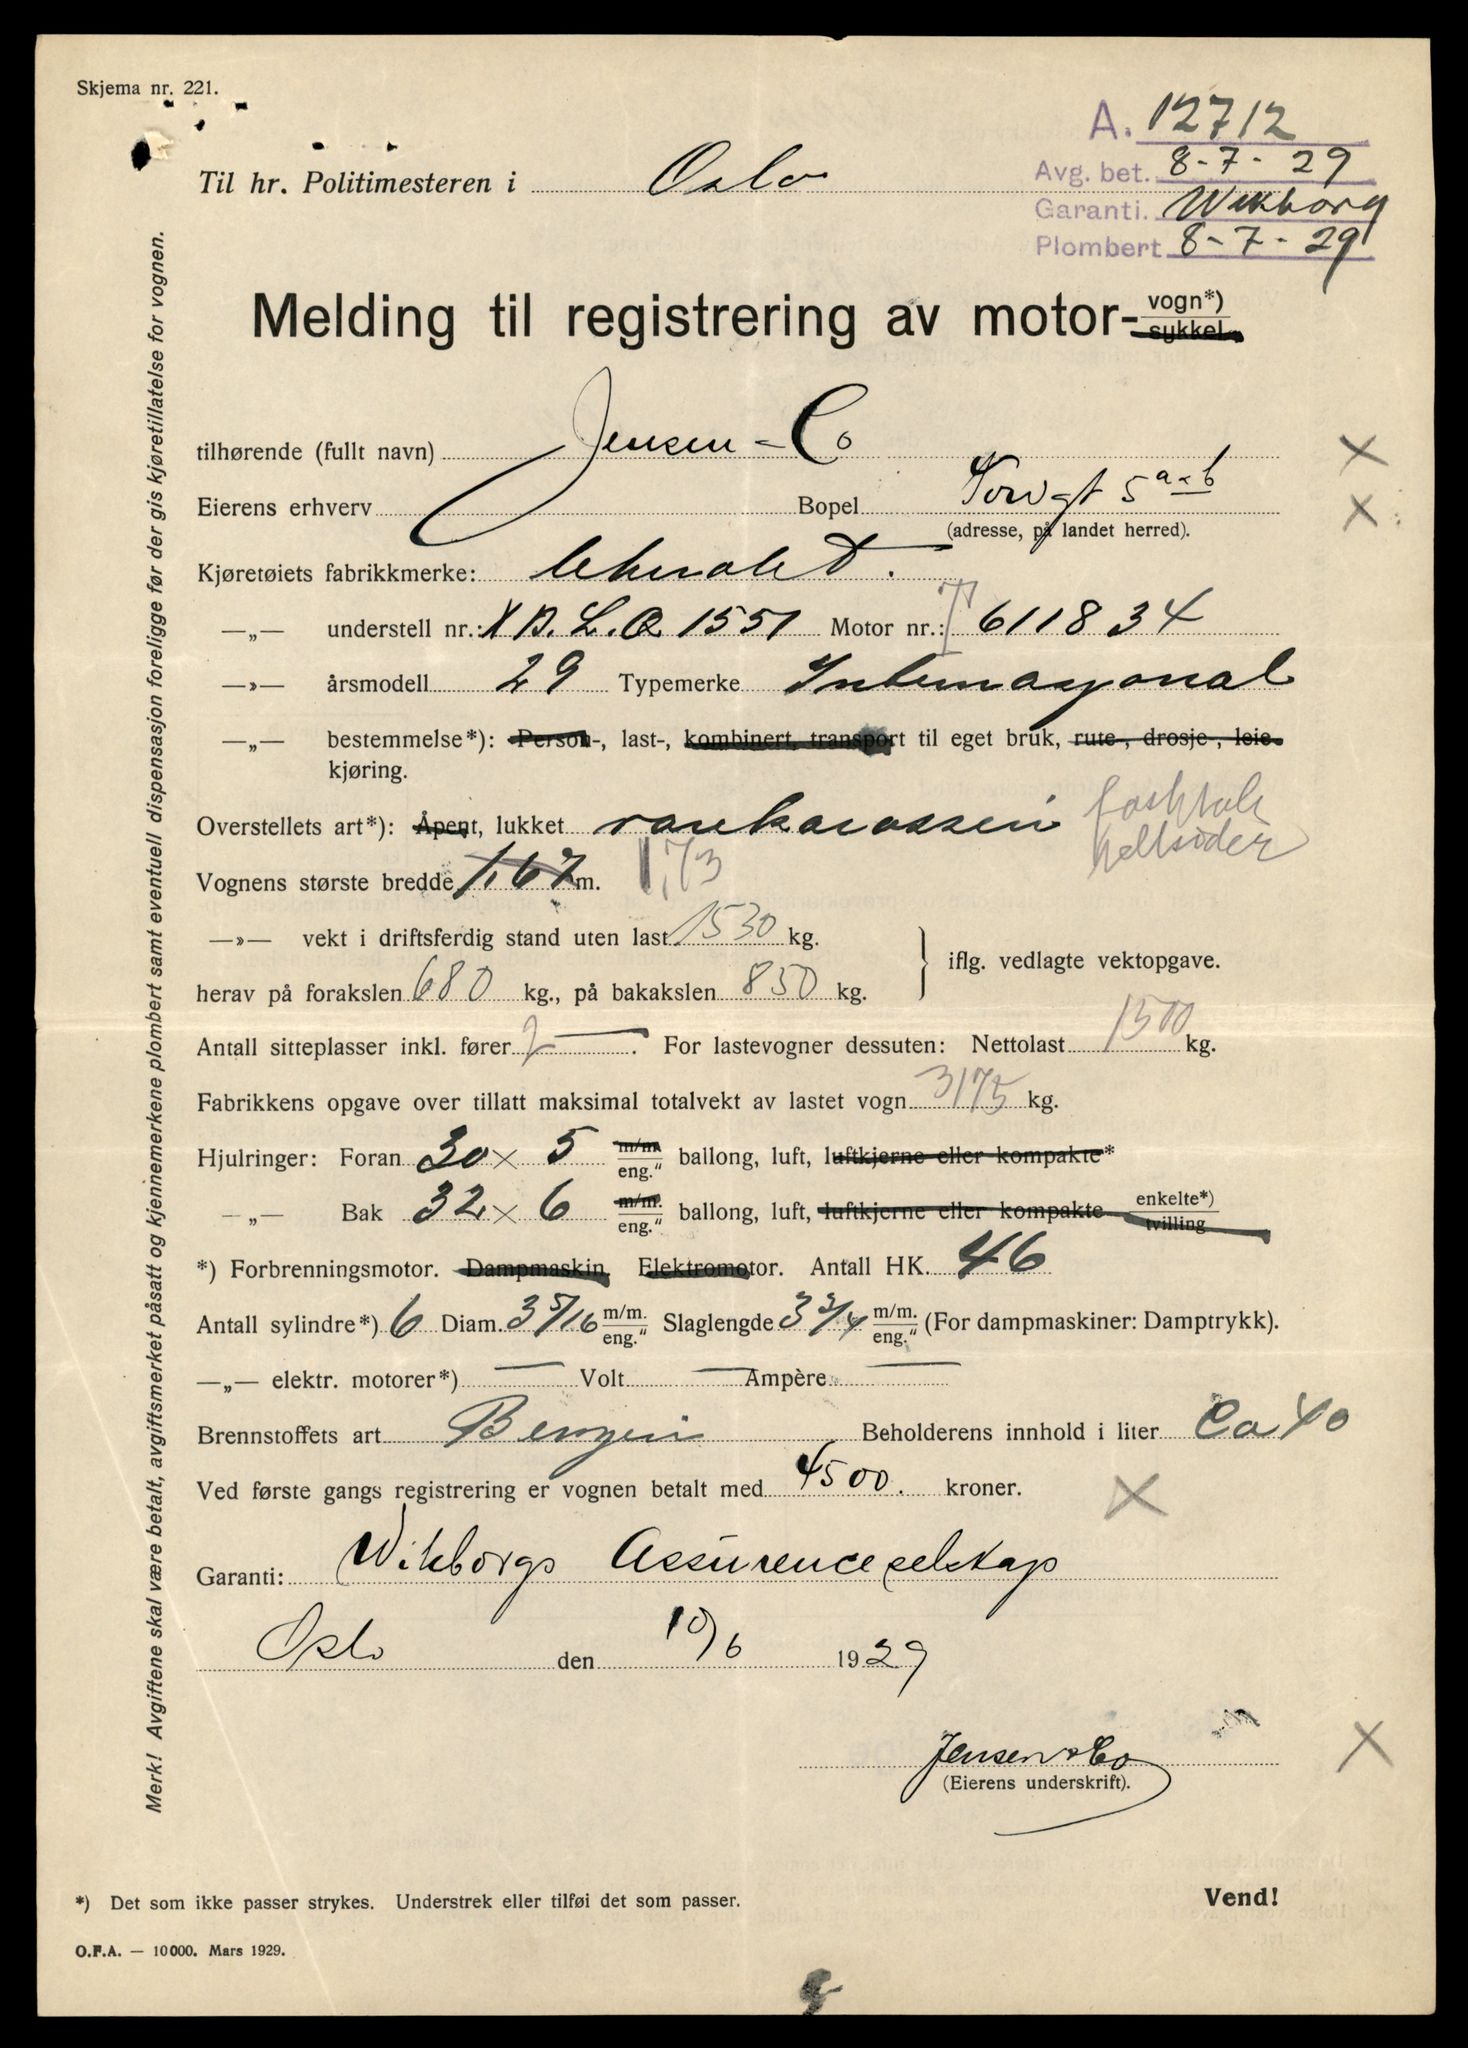 Skjema nr. 221.
A. 12712
Avg. bet. 8-7-29
Garanti. Wikborg
Plombert 8-7-29
Til hr. Politimesteren i Oslo
Melding til registrering av motor- vogn*)
sykkel.
tilhørende (fullt navn) Jensen - Co
Eierens erhverv Bopel Torvgt 5 a-b
(adresse, på landet herred).
Kjøretøiets fabrikkmerke: Chevrolet.
—„— understell nr.: X B. L. Q 1551 Motor nr.: T 611834
—»— årsmodell 29 Typemerke Internasjonal
—„— bestemmelse*): Person-, last-, kombinert, transport til eget bruk, rute-, drosje-, leie-
kjøring.
Overstellets art*): Åpent, lukket varekarosseri fasttak
helsider
Vognens største bredde 1.67 m. 1,73
—»— vekt i driftsferdig stand uten last 1530 kg.
herav på forakslen 680 kg., på bakakslen 850 kg. iflg. vedlagte vektopgave.
Antall sitteplasser inkl. fører 2. For lastevogner dessuten: Nettolast 1500 kg.
Fabrikkens opgave over tillatt maksimal totalvekt av lastet vogn 3175 kg.
Hjulringer: Foran 30 x 5 m/m. eng." ballong, luft, luftkjerne eller kompakte*
—„— Bak 32 x 6 m/m. eng." ballong, luft, luftkjerne eller kompakte enkelte*) tvilling
*) Forbrenningsmotor. Dampmaskin. Elektromotor. Antall HK. 46
Antall sylindre*) 6 Diam. 3 5/16 m/m. eng." Slaglengde 3 3/4 m/m. eng." (For dampmaskiner: Damptrykk).
—„— elektr. motorer*) — Volt — Ampère —
Brennstoffets art Benzin Beholderens innhold i liter Ca 40
Ved første gangs registrering er vognen betalt med 4500. kroner.
Garanti: Wikborgs Assuranceselskap
Oslo den 10/6 1929
Jensen & Co
(Eierens underskrift).
*) Det som ikke passer strykes. Understrek eller tilføi det som passer.
Vend!
O.F.A. — 10000. Mars 1929.
Merk! Avgiftene skal være betalt, avgiftsmerket påsatt og kjennemerkene plombert samt eventuell dispensasjon foreligge før der gis kjøretillatelse for vognen.